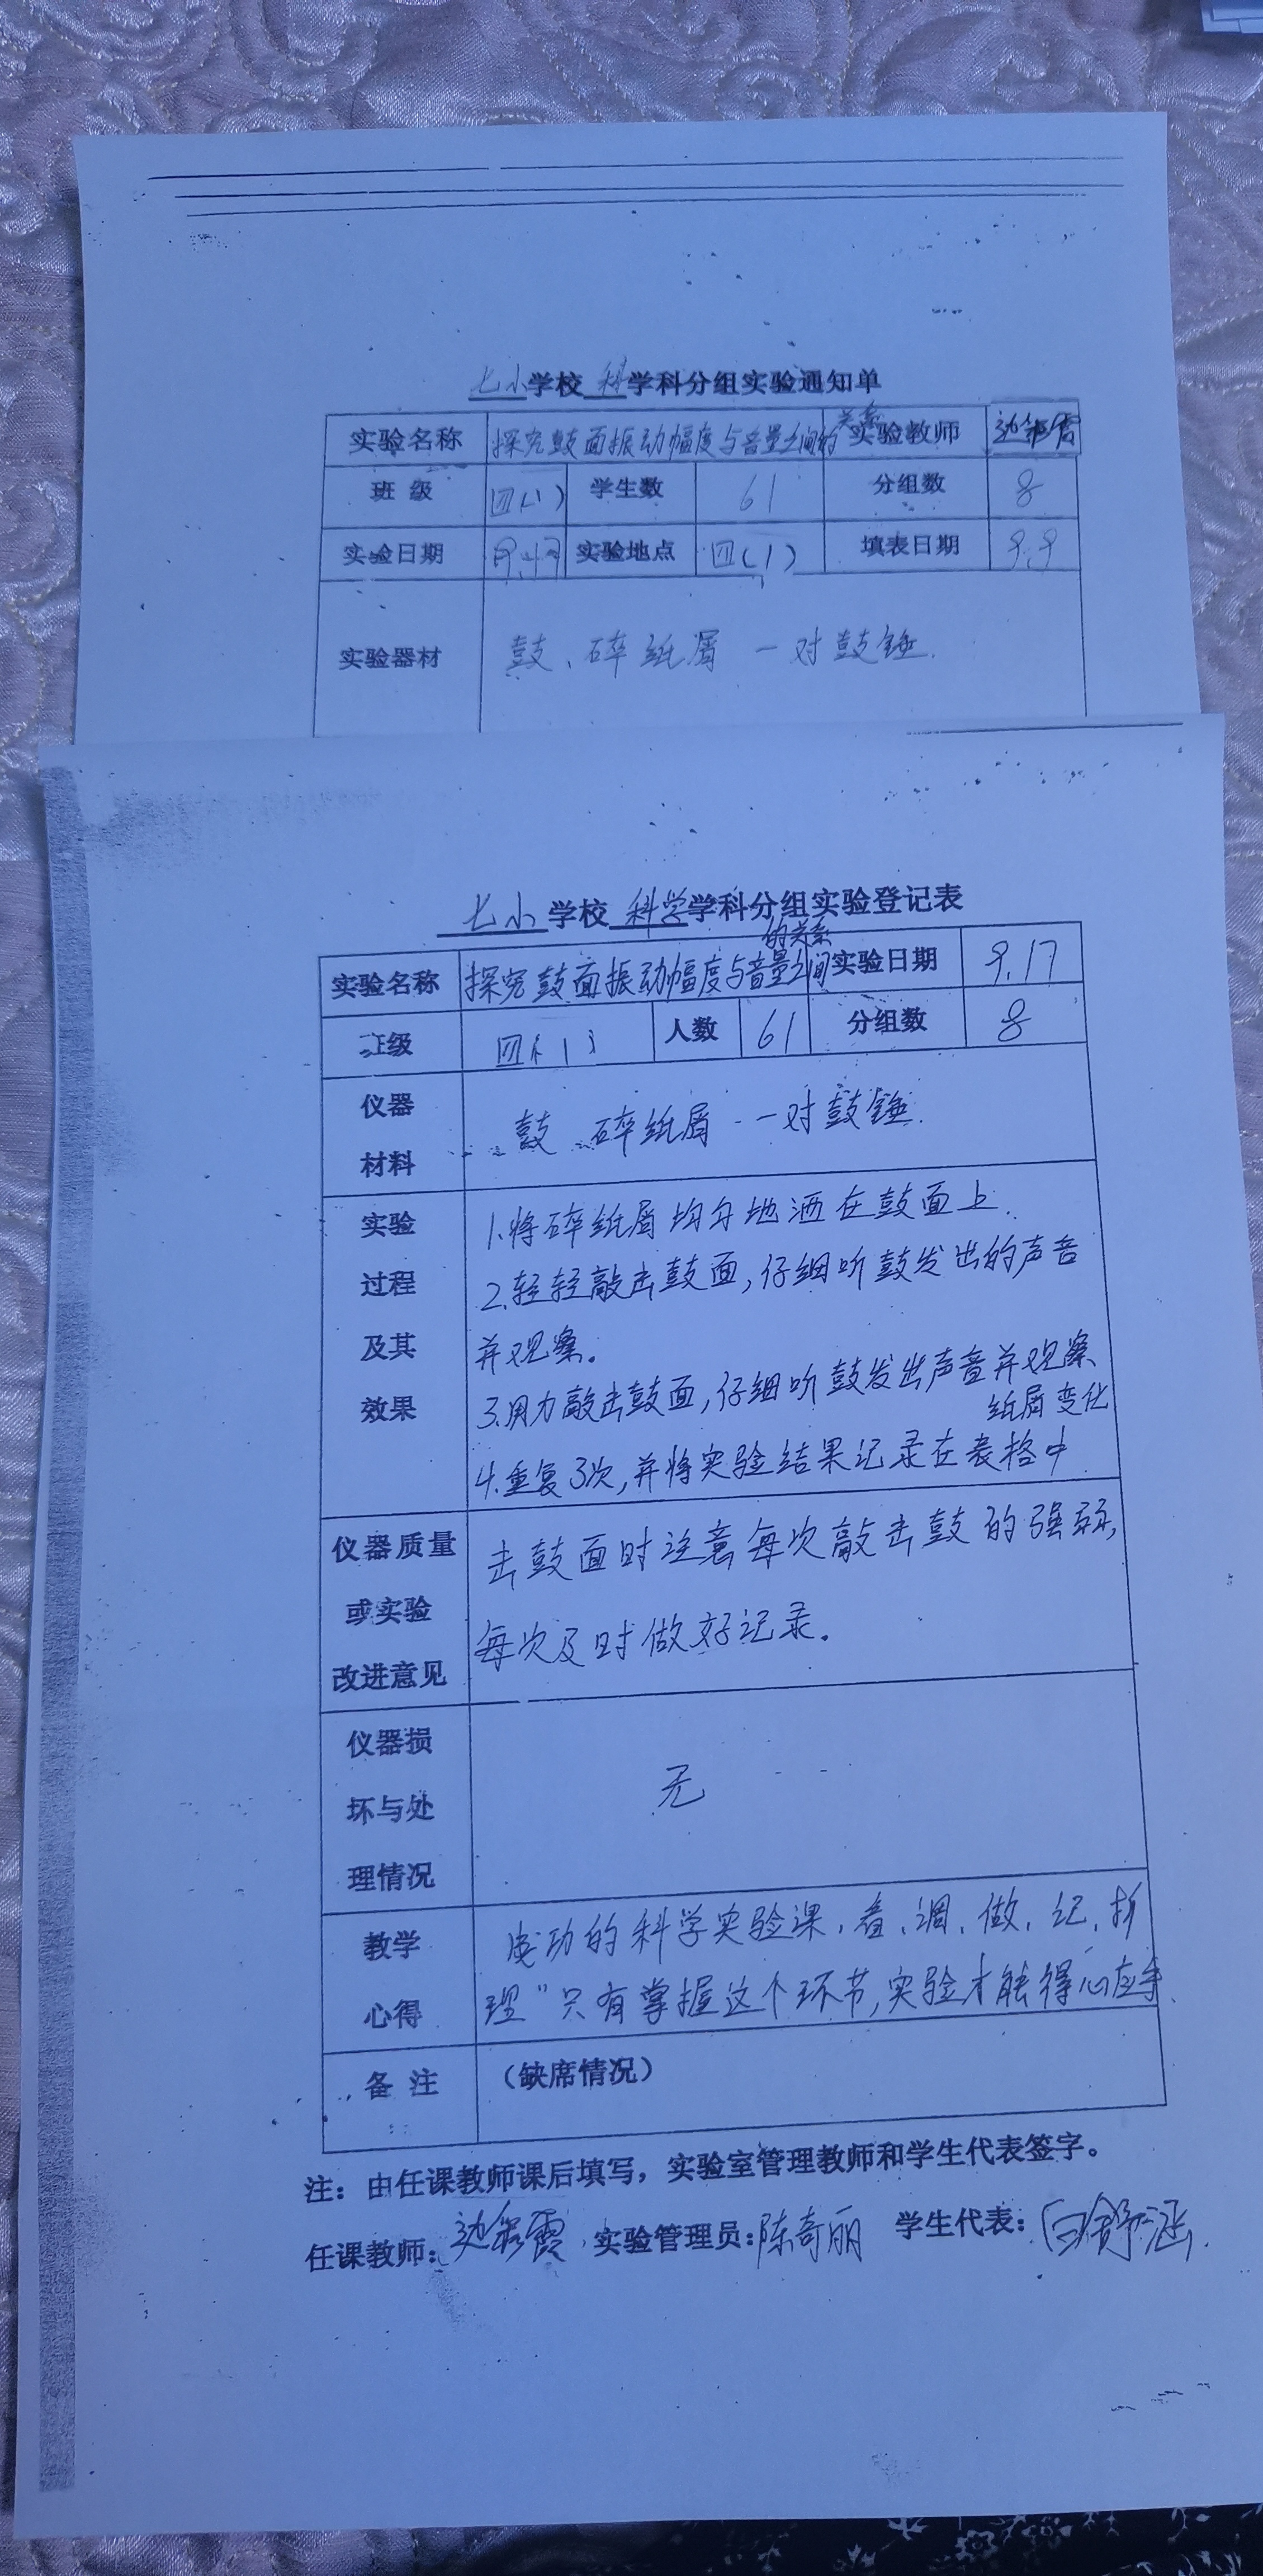 七小学校 科学科分组实验通知单
实验名称 探究鼓面振动幅度与音量之间的关系 实验教师
班 级 四(1) 学生数 61 分组数 8
实验日期 实验地点 四(1) 填表日期 9.9
实验器材 鼓、碎纸屑 一对鼓锤.
七小 学校 科学学科分组实验登记表
实验名称 探究鼓面振动幅度与音量之间的关系 实验日期 9.17
班级 四(1) 人数 61 分组数 8
仪器材料 鼓、碎纸屑、一对鼓锤.
实验过程及其效果
1.将碎纸屑均匀地洒在鼓面上.
2.轻轻敲击鼓面,仔细听鼓发出的声音
并观察。
3.用力敲击鼓面,仔细听鼓发出声音并观察
纸屑变化
4.重复3次,并将实验结果记录在表格中
仪器质量或实验改进意见
击鼓面时注意每次敲击鼓的强弱,
每次及时做好记录。
仪器损坏与处理情况 无
教学心得
成功的科学实验课,看、调、做、记、析
理”只有掌握这个环节,实验才能得心应手.
备 注 (缺席情况)
注:由任课教师课后填写,实验室管理教师和学生代表签字。
任课教师:边彩霞 实验管理员:陈奇丽 学生代表:白舒涵